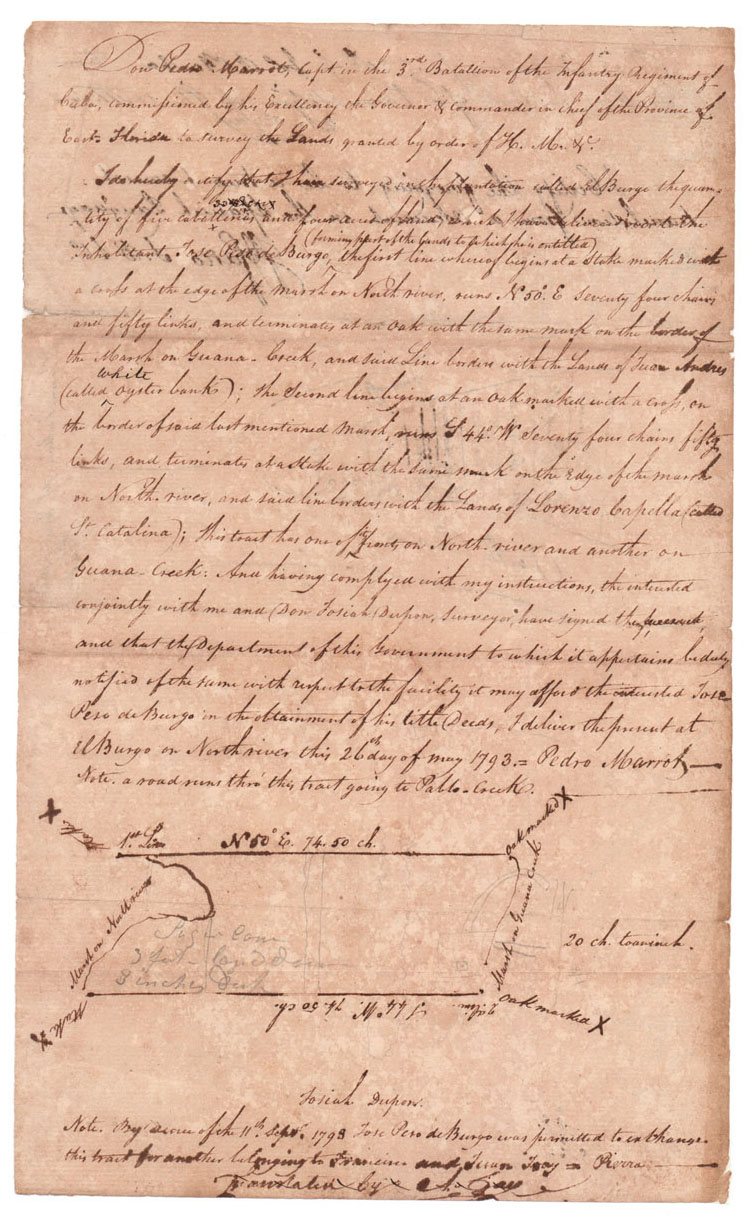 Don Pedro Marrot, Capt. in the 3rd Batallion of the Infantry Regiment of
Cuba, commissioned by his Excellency the Governor & Commander in chief of the Province of
East Florida to survey the Lands granted by order of H. M. &c.
I do hereby certify that I have surveyed in the plantation called El Burgo the quan-
tity of five caballerias and four acres of land, which I have delivered unto the
(forming part of the Lands to which he is entitled)
Inhabitant Jose Peso de Burgo, the first line whereof begins at a Stake marked with
a cross at the edge of the Marsh on North river, runs N 50°. E Seventy four chains
and fifty links, and terminates at an Oak with the same mark on the border of
the Marsh on Guana-Creek, and said Line borders with the Lands of Juan Andres
White
(called Oyster banks); the Second line begins at an Oak marked with a cross, on
the border of said last mentioned Marsh, runs S 44°. W Seventy four chains fifty
links, and terminates at a Stake with the same mark on the Edge of the marsh
on North-river, and said line borders with the Lands of Lorenzo Capella (called
St. Catalina); This tract has one of its fronts on North-river and another on
Guana-Creek: And having complyed with my instructions, the interested
conjointly with me and Don Josiah Dupon, Surveyor, have signed the
and that the Department of this Government to which it appertains be duly
notified of the same with respect to the facility it may afford the interested Jose
Peso de Burgo in the obtainment of his title Deeds, I deliver the present at
El Burgo on North river this 26th day of may 1793.= Pedro Marrot
Note. a road runs thro' this tract going to Pablo-Creek.
X
Stake
1st. Line N 50° E. 74.50 ch.
Oak marked X
Marsh on North river
Marsh on Guana Creek
20 ch. to an inch.
3 feet
8 inches
Stake X
S 44° W. 74.50 ch.
2d. Lin
Oak marked X
Josiah Dupon.
Note. By Decree of the 11th. Sept. 1793 Jose Peso de Burgo was permitted to exchange
this tract for another belonging to Francisco and Juan Triay = Rivera
Translated by